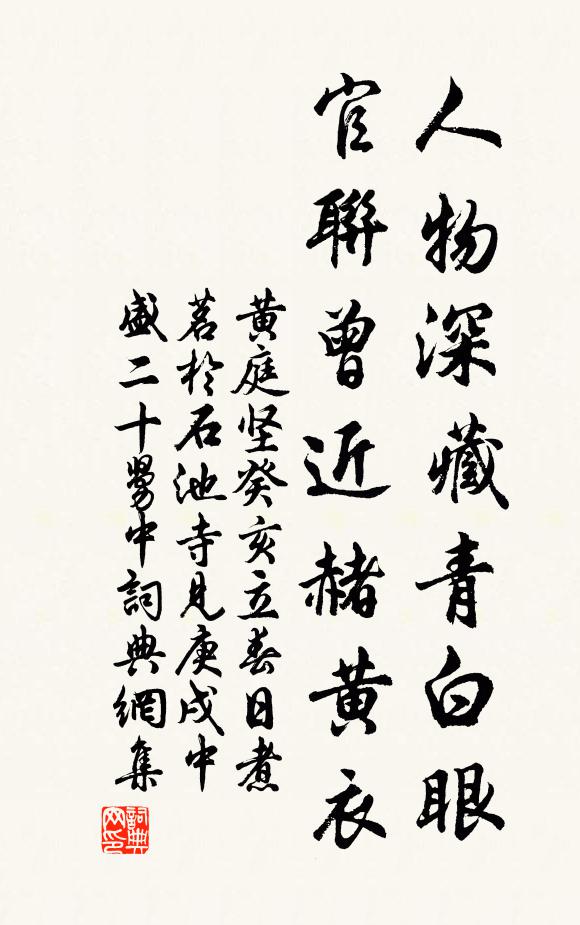 人物深藏青白眼
官聯曾近赭黄衣
黄庭坚癸亥立春日煮
茗於石池寺見庚戌中
盛二十舅中詞典網集
詞典
网印